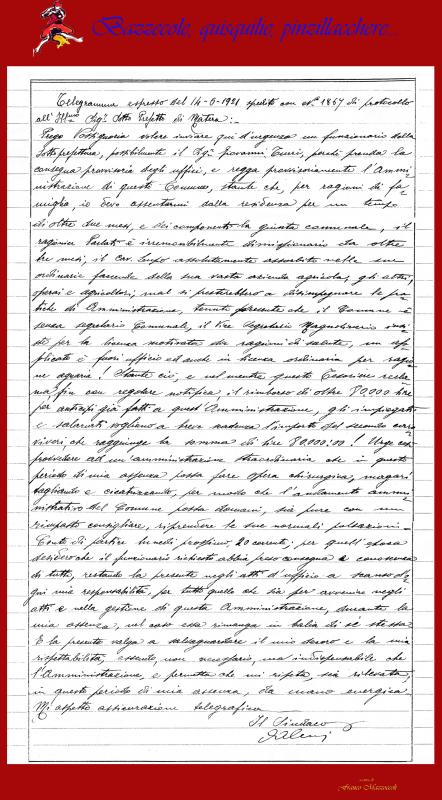 Bazzecole, quisquilie, pinzillacchere...
Telegramma espresso del 14-6-1921 spedito con n° 1867 di protocollo
all'Ill.mo Sig. Sotto Prefetto di Matera:-
Prego Vossignoria volere inviare qui d'urgenza un funzionario della
Sottoprefettura, possibilmente il Sig. Giovanni Turri, perchè prenda la
consegna provvisoria degli uffici, e regga provvisoriamente l'Ammi-
nistrazione di questo Comune, stante che, per ragioni di fa-
miglia, io devo assentarmi dalla residenza per un tempo
di oltre due mesi, e dei componenti la giunta comunale, il
ragioniere è irremovibilmente dimissionario da oltre
tre mesi, il cav. Lupo assolutamente assorbito nelle sue
ordinarie faccende della sua vasta azienda agricola; gli altri,
operai e agricoltori, mal si presterebbero a disimpegnare le pra-
tiche di Amministrazione, tenuto presente che il Comune è
senza segretario Comunale, il Vice Segretario Magnolivario insi-
ste per la licenza motivata da ragioni di salute, un ap-
plicato è fuori ufficio ed anche in licenza ordinaria per ragio-
ne agraria! Stante ciò, e nel mentre questo Tesoriere recla-
ma, fin con regolare notifica, il rimborso di oltre 80,000 lire
per anticipi già fatti a quest'Amministrazione, gli impiegati
e salariati vogliono a breve scadenza l'importo del secondo caro
viveri che raggiunge la somma di lire 80,000:00! Urge
provvedere ad un'amministrazione straordinaria che in questo
periodo di mia assenza possa fare opera chirurgica, magari
tagliando e cicatrizzando, per modo che l'andamento ammi-
nistrativo del Comune possa domani, sia pure con un
rimpasto consigliare, riprendere le sue normali pulsazioni.-
Conto di partire lunedì prossimo, 20 corrente; per quell'epoca
desidero che il funzionario richiesto abbia preso consegna e conoscenza
di tutto, restando la presente negli atti d'ufficio a scanso d'o-
gni mia responsabilità, per tutto quello che sia per avvenire negli
atti e nella gestione di questa Amministrazione, durante la
mia assenza, nel caso essa rimanga in balia di sè stessa.
E la presente valga a salvaguardare il mio decoro e la mia
rispettabilità, essendo, non necessario, ma indispensabile che
l'Amministrazione, e permetta che mi ripeta, sia rilevata,
in questo periodo di mia assenza, da mano energica.
Mi aspetto assicurazione telegrafica
Il Sindaco
a cura di
Franco Mazzoccoli